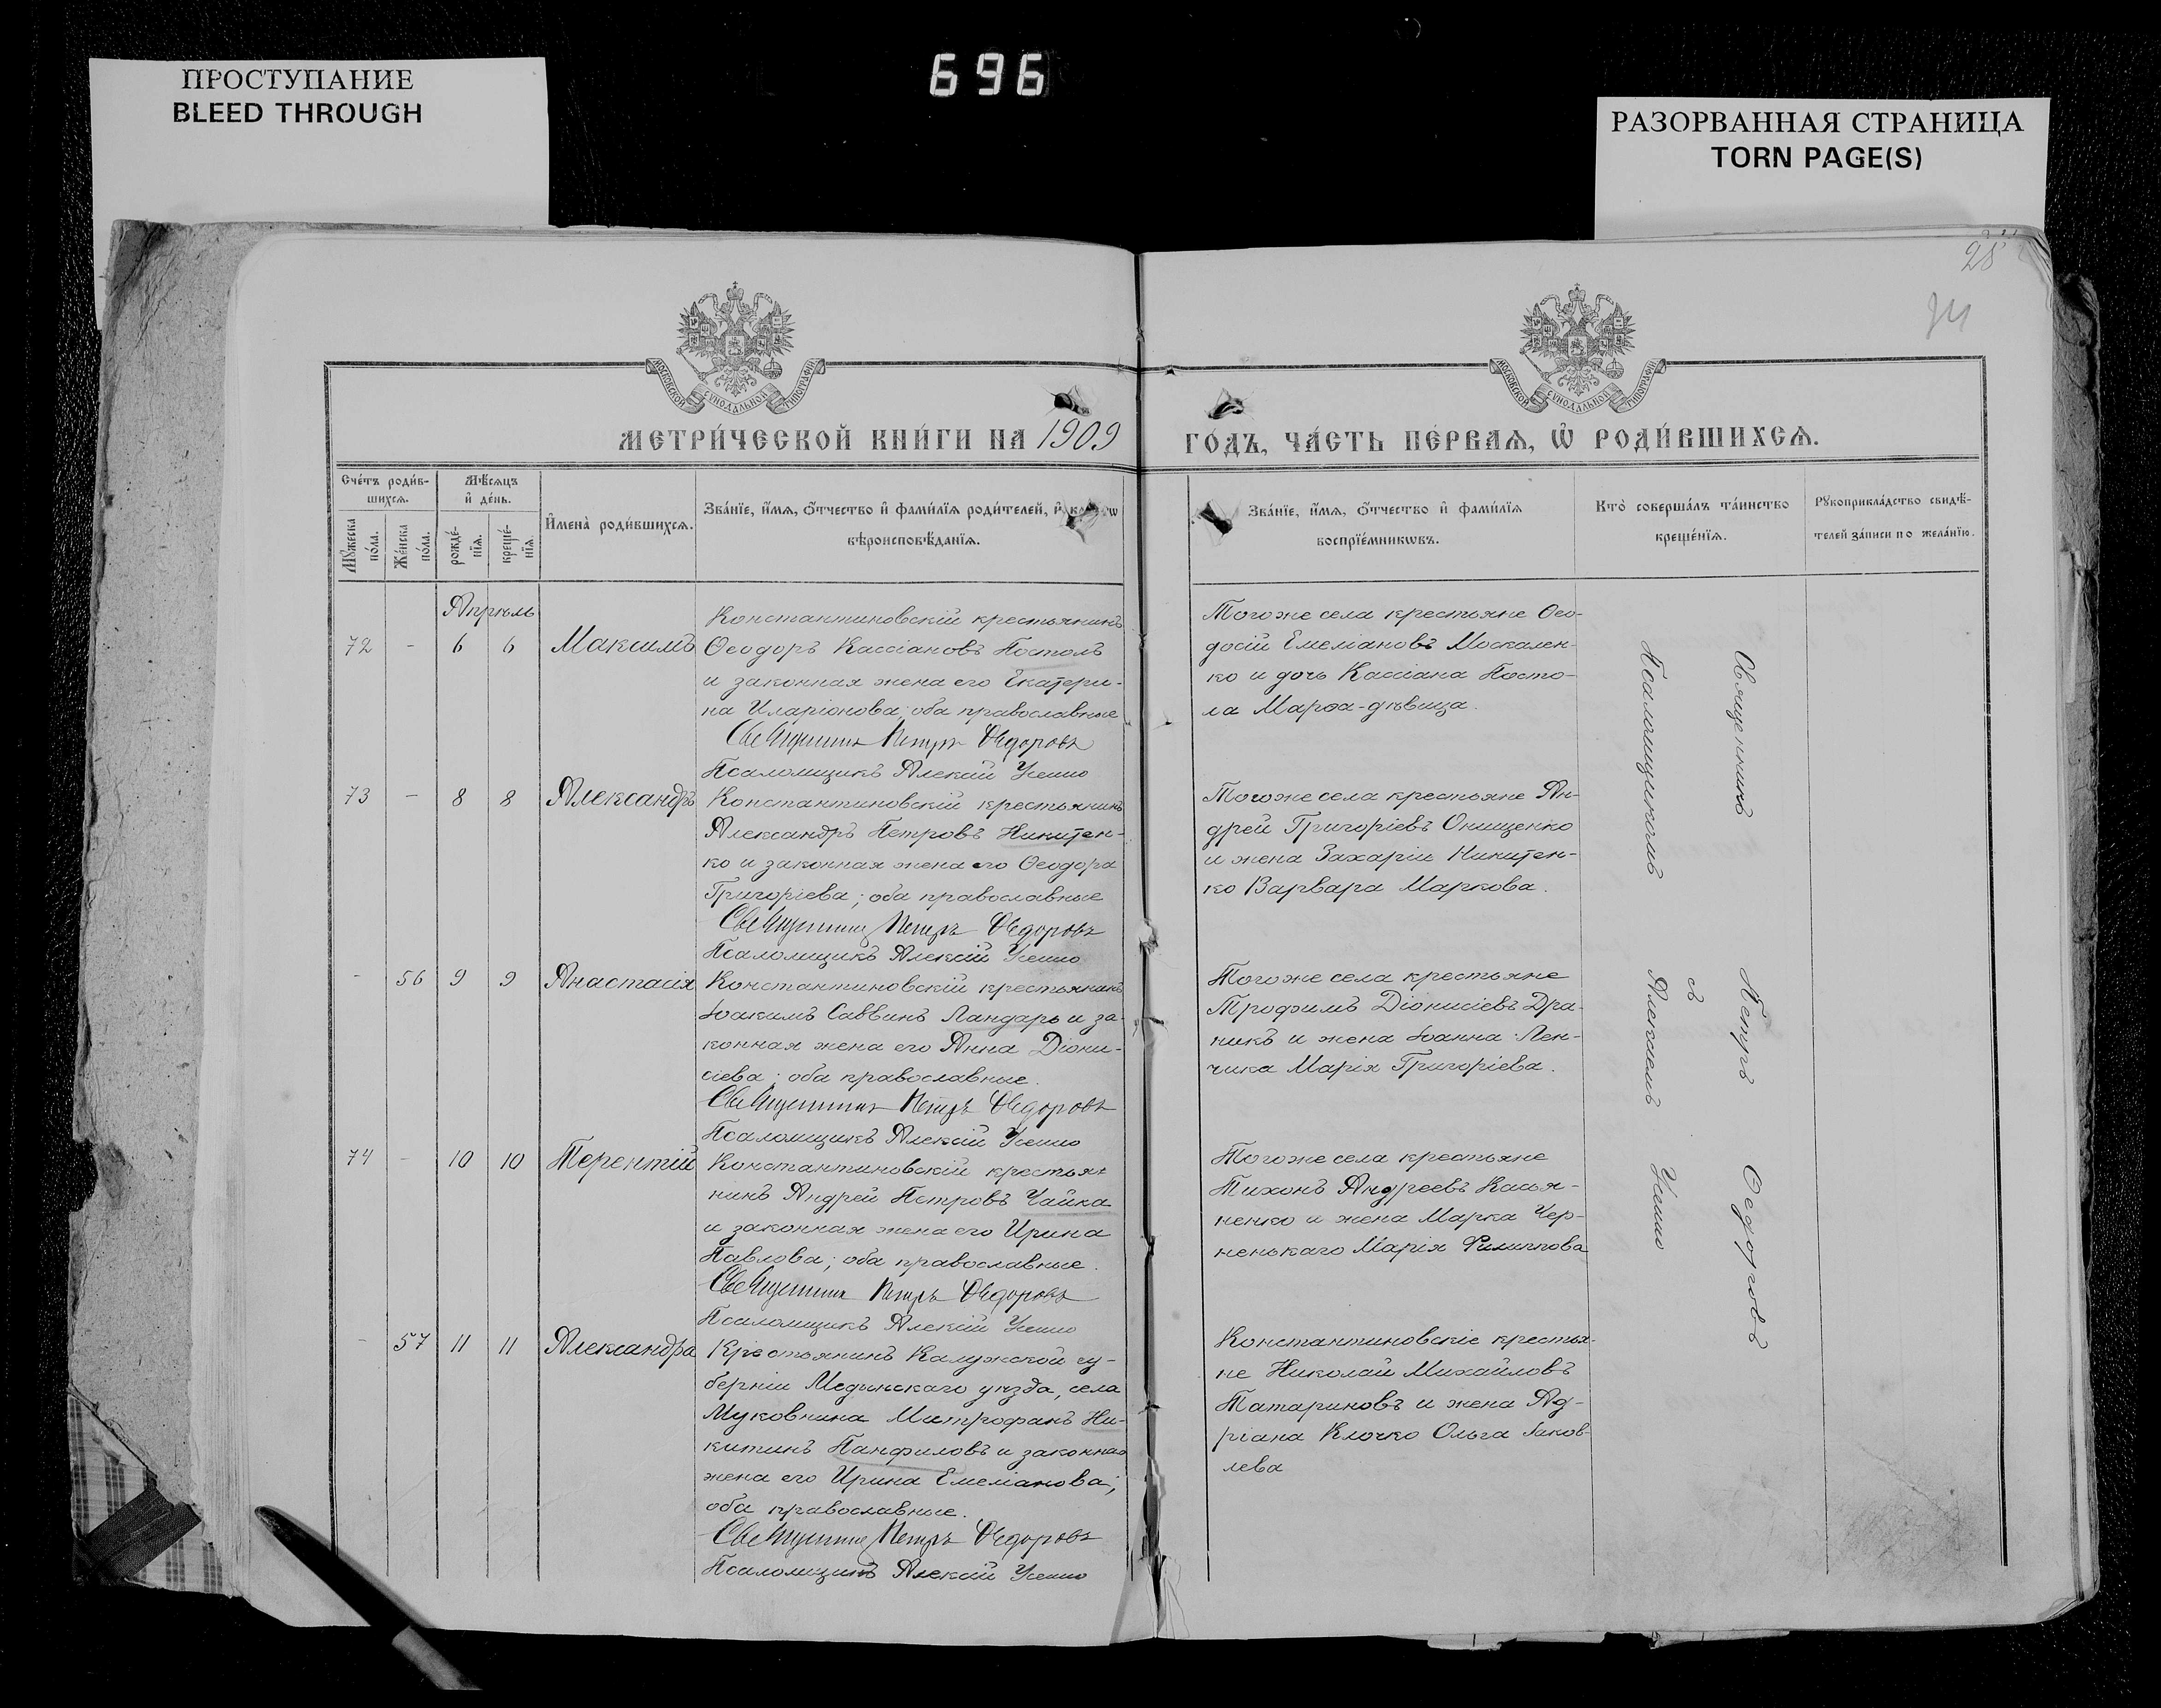 ПРОСТУПАНИЕ
BLEED THROUGH
696
РАЗОРВАННАЯ СТРАНИЦА
TORN PAGE(S)
28
МОСКОВСКОЙ СУНОДАЛЬНОЙ ТИПОГРАФІИ
МОСКОВСКОЙ СУНОДАЛЬНОЙ ТИПОГРАФІИ
МЕТРИ́ЧЕСКОЙ КНИ́ГИ НА 1909
ГО́ДЪ, ЧА́СТЬ ПЕ́РВАѦ, Ѿ РОДИ́ВШИХСѦ.
Сче́тъ роди́в-
шихсѧ.
Мѣ́сѧцъ
и҆ де́нь.
Мꙋ́жеска
по́ла.
Же́нска
по́ла.
рожде́-
нїѧ.
креще́-
нїѧ.
И҆мена̀ роди́вшихсѧ.
Зва́нїе, и҆́мѧ, ѻ҆́тчество и҆ фами́лїѧ роди́телей, и҆
вѣроисповѣ́данїѧ.
Зва́нїе, и҆́мѧ, ѻ҆́тчество и҆ фами́лїѧ
воспрїе́мникѡвъ.
Кто̀ соверша́лъ та́инство
креще́нїѧ.
Рꙋкоприкла́дство свидѣ́-
телей за́писи по жела́нїю.
Апрѣль
72 - 6 6 Максимъ
Константиновскій крестьянинъ
Ѳеодоръ Кассіановъ Постолъ
и законная жена его Екатери-
на Иларіонова; оба православные
Священникъ Петръ Ѳедоровъ
Псаломщикъ Алексій Усенко
Тогоже села крестьяне Ѳео-
досій Емеліановъ Москален-
ко и дочь Кассіана Посто-
ла Марѳа-дѣвица.
73 - 8 8 Александръ
Константиновскій крестьянинъ
Александръ Петровъ Никитен-
ко и законная жена его Ѳеодора
Григоріева; оба православные
Священникъ Петръ Ѳедоровъ
Псаломщикъ Алексій Усенко
Тогоже села крестьяне Ан-
дрей Григоріевъ Онищенко
и жена Захаріи Никитен-
ко Варвара Маркова.
- 56 9 9 Анастасія
Константиновскій крестьянинъ
Іоакимъ Саввинъ Ландарь и за-
конная жена его Анна Діони-
сіева; оба православные.
Священникъ Петръ Ѳедоровъ
Псаломщикъ Алексій Усенко
Тогоже села крестьяне
Трофимъ Діонисіевъ Дра-
никъ и жена Іоанна Лен-
чика Марія Григоріева.
74 - 10 10 Терентій
Константиновскій крестья-
нинъ Андрей Петровъ Чайка
и законная жена его Ирина
Павлова; оба православные.
Священникъ Петръ Ѳедоровъ
Псаломщикъ Алексій Усенко
Тогоже села крестьяне
Тихонъ Андреевъ Касья-
ненко и жена Марка Чер-
ненькаго Марія Филиппова
- 57 11 11 Александра
Крестьянинъ Калужской гу-
берніи Медынскаго уѣзда, села
Муковнина Митрофанъ Ни-
китинъ Панфиловъ и законная
жена его Ирина Емеліанова;
оба православные.
Священникъ Петръ Ѳедоровъ
Псаломщикъ Алексій Усенко
Константиновскіе крестья-
не Николай Михайловъ
Татариновъ и жена Ад-
ріана Клочко Ольга Іаков-
лева
Священникъ Петръ Ѳедоровъ
съ
Псаломщикомъ Алексіемъ Усенко